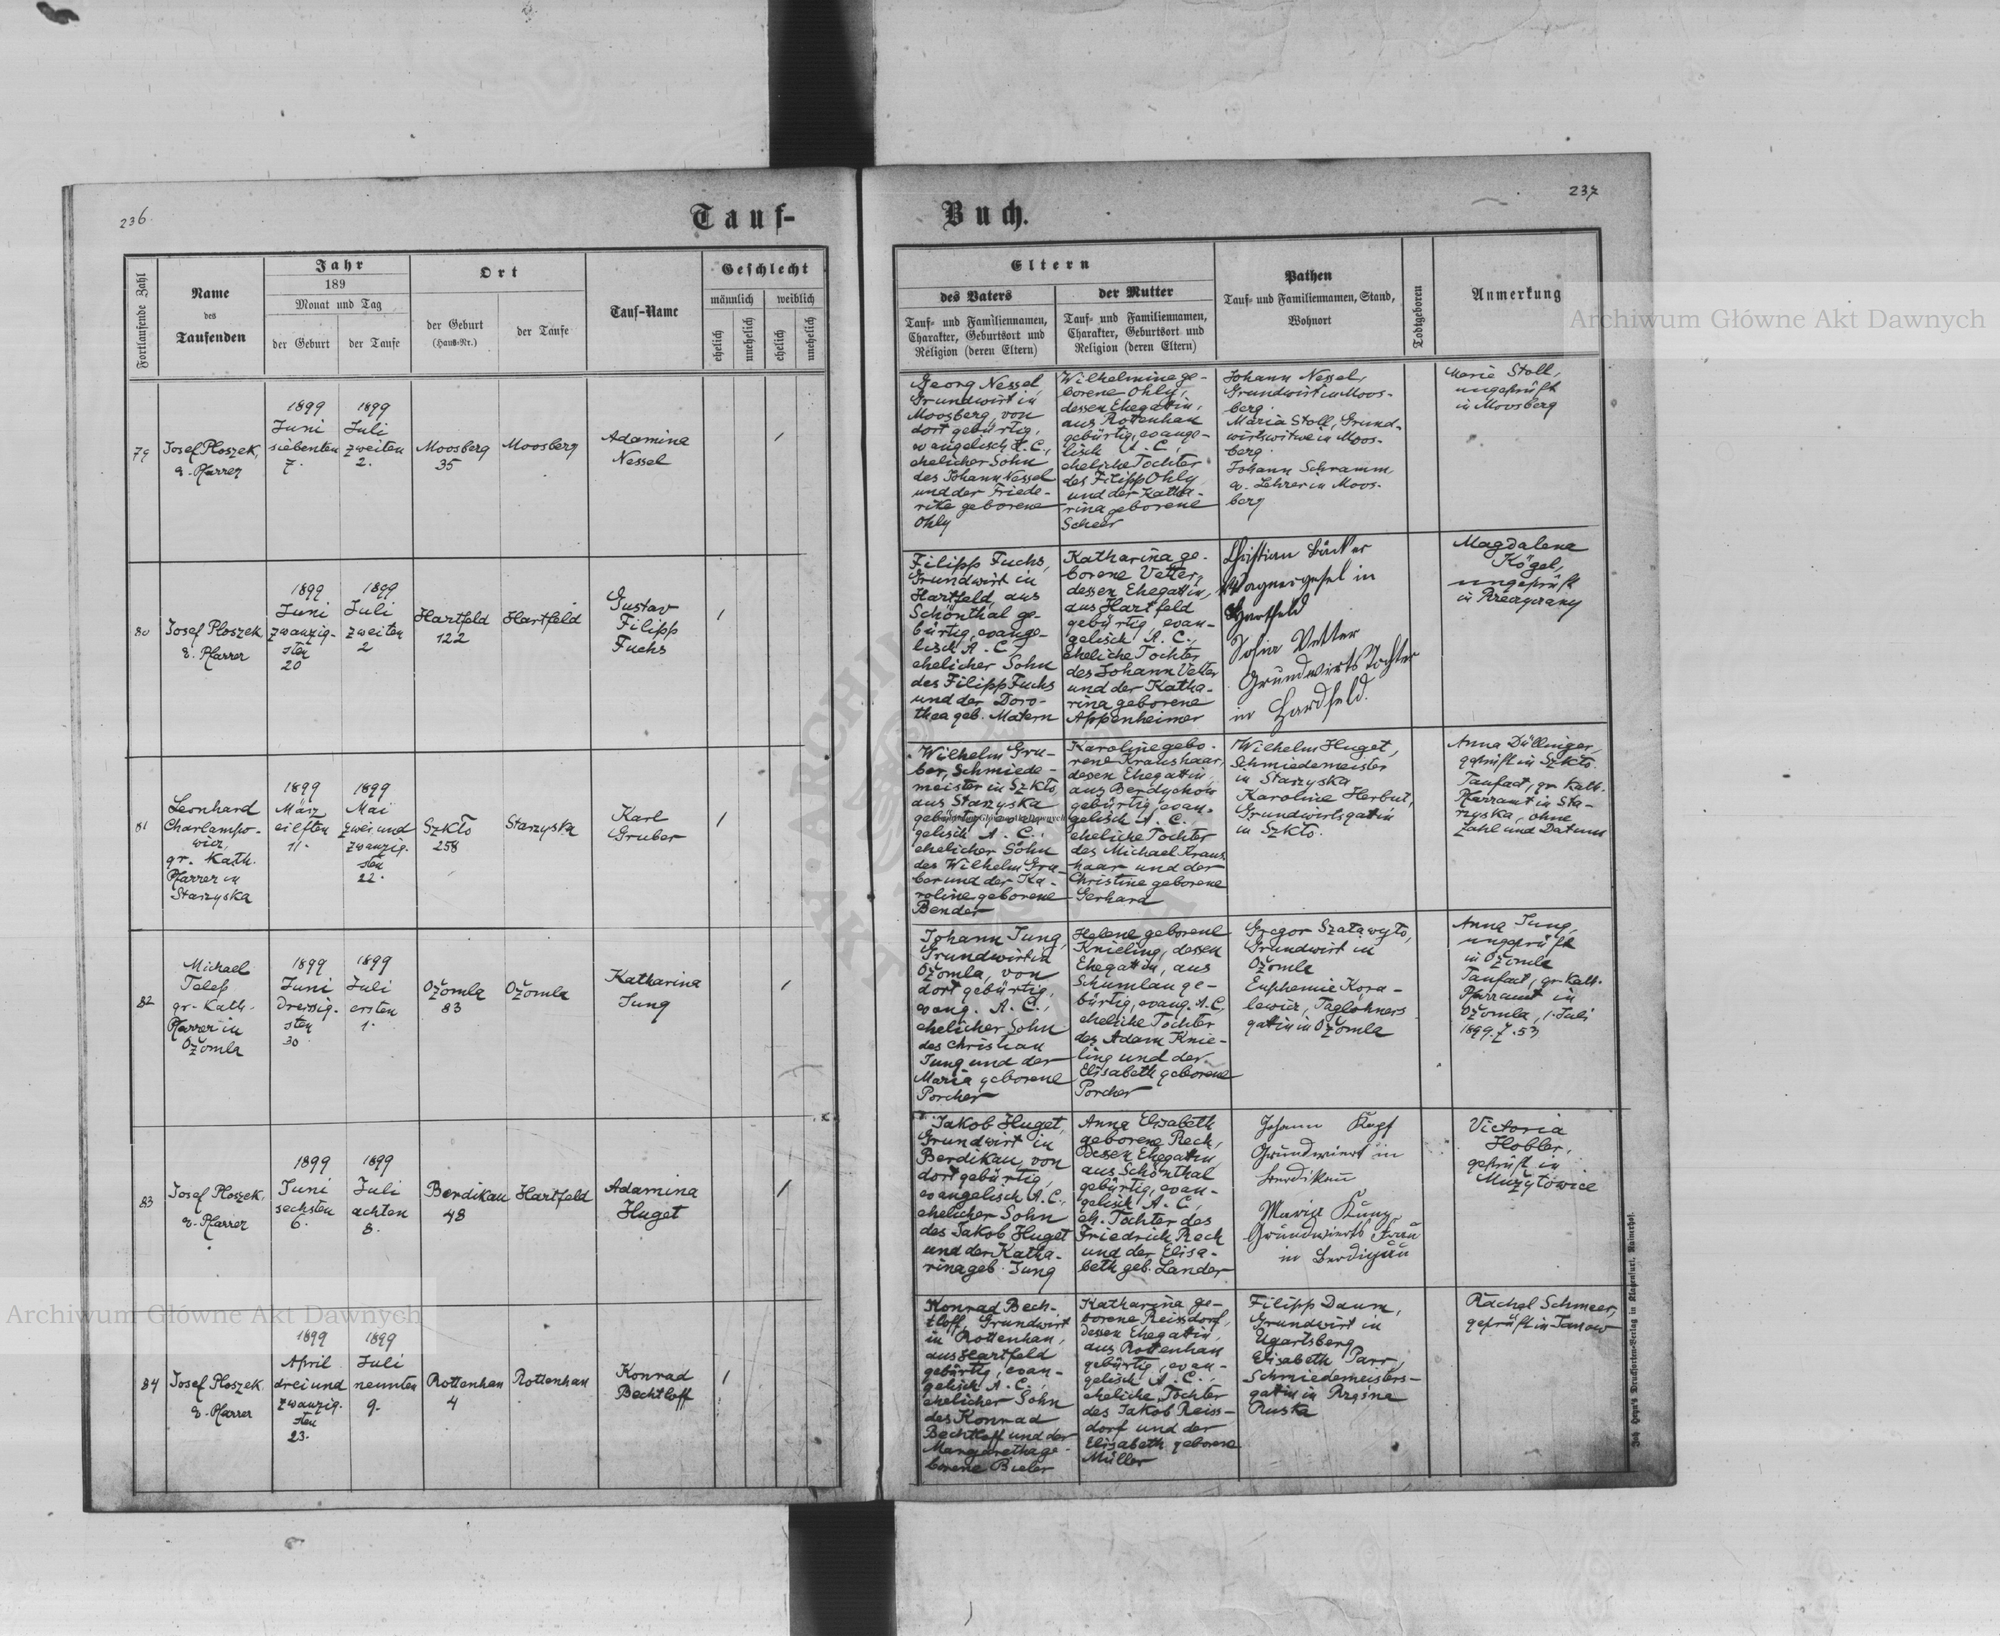 236
Tauf-
Fortlaufende Zahl
Name
des
Taufenden
Jahr
189
Monat und Tag
der Geburt
der Taufe
Ort
der Geburt
(Haus-Nr.)
der Taufe
Tauf-Name
Geschlecht
männlich
weiblich
ehelich
unehelich
ehelich
unehelich
79
Josef Ploszek,
e. Pfarrer
1899
Juni
siebenten
7.
1899
Juli
zweiten
2.
Moosberg
35
Moosberg
Adamine
Nessel
80
Josef Ploszek
e. Pfarrer
1899
Juni
zwanzig-
sten
20
1899
Juli
zweiten
2
Hartfeld
122
Hartfeld
Gustav
Filipp
Fuchs
81
Leonhard
Charlampo-
wicz,
gr. Kath.
Pfarrer in
Starzyska
1899
März
eilften
11.
1899
Mai
zwei und
zwanzig-
sten
22.
Szkło
258
Starzyska
Karl
Gruber
82
Michael
Telef
gr-Kath.
Pfarrer in
Ožomla
1899
Juni
dreissig-
sten
30.
1899
Juli
ersten
1.
Ožomla
83
Ožomla
Katharina
Jung
83
Josef Ploszek,
e. Pfarrer
1899
Juni
sechsten
6.
1899
Juli
achten
8.
Berdikau
48
Hartfeld
Adamina
Huget
84
Josef Ploszek
e. Pfarrer
1899
April
drei und
zwanzig-
sten
23.
1899
Juli
neunten
9.
Rottenhan
4
Rottenhan
Konrad
Bechtloff
237
Buch.
Eltern
des Vaters
Tauf- und Familiennamen,
Charakter, Geburtsort und
Religion (deren Eltern)
der Mutter
Tauf- und Familiennamen,
Charakter, Geburtsort und
Religion (deren Eltern)
Pathen
Tauf- und Familiennamen, Stand,
Wohnort
Todtgeboren
Anmerkung
Georg Nessel,
Grundwirt in
Moosberg, von
dort gebürtig,
evangelisch A. C.,
ehelicher Sohn
des Johann Nessel
und der Friede-
rike geborene
Ohly
Wilhelmine ge-
borene Ohly,
dessen Ehegatin,
aus Rottenhan
gebürtig, evange-
lisch A. C.,
eheliche Tochter
des Filipp Ohly
und der Katha-
rina geborene
Scheer
Johann Nessel,
Grundwirt in Moos-
berg.
Maria Stoll, Grund-
wirtswitwe in Moos-
berg.
Johann Schramm
e. Lehrer in Moos-
berg
Marie Stoll,
ungeprüft
in Moosberg
Filipp Fuchs,
Grundwirt in
Hartfeld, aus
Schönthal ge-
bürtig, evange-
lisch A. C.,
ehelicher Sohn
des Filipp Fuchs
und der Doro-
thea geb. Matern
Katharina ge-
borene Vetter,
dessen Ehegatin,
aus Hartfeld
gebürtig, evan-
gelisch A. C.,
eheliche Tochter
des Johann Vetter
und der Katha-
rina geborene
Appenheimer
Christian Bäcker
Wagnergesel in
Hartfeld
Sofia Vetter
Grundwirts Tochter
in Hardfeld.
Magdalena
Kögel,
ungeprüft
in
Wilhelm Gru-
ber, Schmiede-
meister in Szkło,
aus Starzyska
gebürtig, evan-
gelisch A. C.,
ehelicher Sohn
des Wilhelm Gru-
ber und der Ka-
roline geborene
Bender
Karoline gebo-
rene Kraushaar,
dessen Ehegatin,
aus Berdychow
gebürtig, evan-
gelisch A. C.,
eheliche Tochter
des Michael Kraus-
haar und der
Christine geborene
Gerhard
Wilhelm Huget,
Schmiedemeister
in Starzyska
Karoline Herbut,
Grundwirtsgatin
in Szkło.
Anna Düllinger,
geprüft in Szkło.
Taufact, gr. Kath.
Pfarramt in Sta-
rzyska, ohne
Zahl und Datum
Johann Jung,
Grundwirt in
Ožomla, von
dort gebürtig,
evang. A. C.,
ehelicher Sohn
des Christian
Jung und der
Maria geborene
Porcher
Helene geborene
Knieling, dessen
Ehegatin, aus
Schumlau ge-
bürtig, evang. A. C.,
eheliche Tochter
des Adam Knie-
ling und der
Elisabeth geborene
Porcher
Gregor Szatawyło,
Grundwirt in
Ožomla
Euphemie Kora-
lewicz, Taglöhners
gatin in Ožomla
Anna Jung,
ungeprüft
in Ožomla
Taufact, gr-Kath.
Pfarramt in
Ožomla, 1. Juli
1899. Z. 53
Jakob Huget,
Grundwirt in
Berdikau, von
dort gebürtig,
evangelisch A. C.,
ehelicher Sohn
des Jakob Huget
und der Katha-
rina geb. Jung
Anna Elisabeth
geborene Rech,
dessen Ehegatin
aus Schönthal
gebürtig, evan-
gelisch A. C.,
eh. Tochter des
Friedrich Rech
und der Elisa-
beth geb. Lander
Johann Kopf
Grundwiert in
Berdikau
Maria Kunz
Grundwierts Frau
in Berdigau
Victoria
Hobler,
geprüft in
Mužyłowice
Konrad Bech-
tloff, Grundwirt
in Rottenhan,
aus Hartfeld
gebürtig, evan-
gelisch A. C.,
ehelicher Sohn
des Konrad
Bechtloff und der
Margaretha ge-
borene Bieler
Katharina ge-
borene Reissdorf,
dessen Ehegatin,
aus Rottenhan
gebürtig, evan-
gelisch A. C.,
eheliche Tochter
des Jakob Reiss-
dorf und der
Elisabeth geborene
Müller
Filipp Daum,
Grundwirt in
Ugartsberg
Elisabeth Parr,
Schmiedemeisters-
gatin in Rzęsna
Ruska
Rachel Schmeer,
geprüft in Janow
Joh. Heyn's Drucksorten-Verlag in Klagenfurt, Rainerhof.
Archiwum Główne Akt Dawnych
Archiwum Główne Akt Dawnych
Archiwum Główne Akt Dawnych